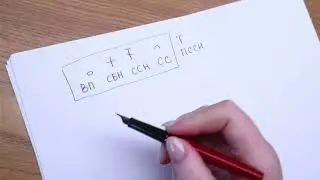 ВП СБН ССН СС Т
ПССН